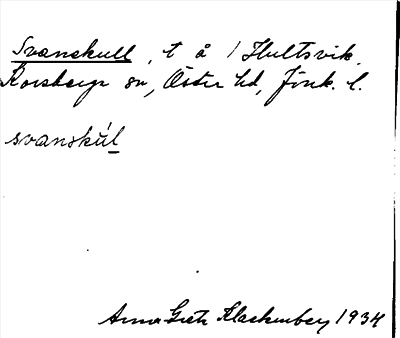 Svanskull, t å i Hultsvik.
Korsberga sn, Öster hd, Jönk. l.
svanskúl
Anna Greta Klackenberg 1934